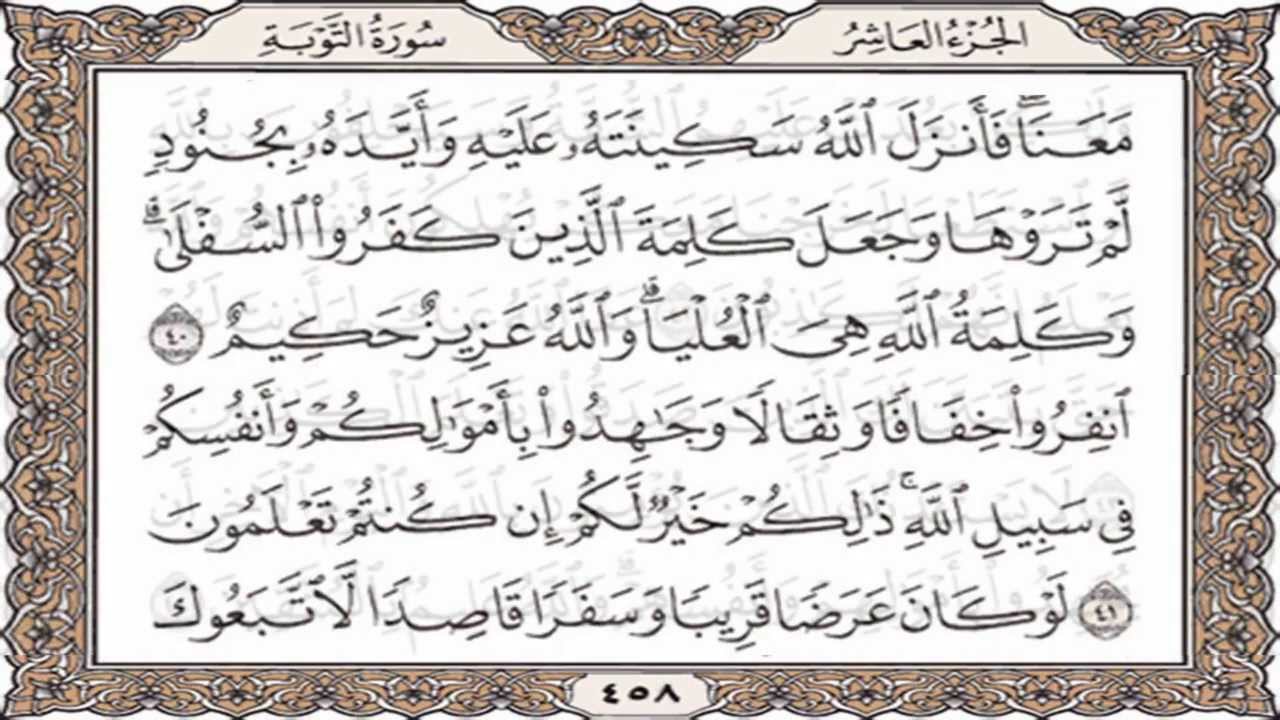 الجُزْءُ العَاشِرُ
سُورَةُ التَّوْبَةِ
مَعَنَاۖ فَأَنزَلَ ٱللَّهُ سَكِينَتَهُۥ عَلَيْهِ وَأَيَّدَهُۥ بِجُنُودٍ
لَّمْ تَرَوْهَا وَجَعَلَ كَلِمَةَ ٱلَّذِينَ كَفَرُوا۟ ٱلسُّفْلَىٰۗ
وَكَلِمَةُ ٱللَّهِ هِىَ ٱلْعُلْيَاۗ وَٱللَّهُ عَزِيزٌ حَكِيمٌ ٤٠
ٱنفِرُوا۟ خِفَافًا وَثِقَالًا وَجَـٰهِدُوا۟ بِأَمْوَٰلِكُمْ وَأَنفُسِكُمْ
فِى سَبِيلِ ٱللَّهِۚ ذَٰلِكُمْ خَيْرٌ لَّكُمْ إِن كُنتُمْ تَعْلَمُونَ
٤١ لَوْ كَانَ عَرَضًا قَرِيبًا وَسَفَرًا قَاصِدًا لَّٱتَّبَعُوكَ
٤٥٨